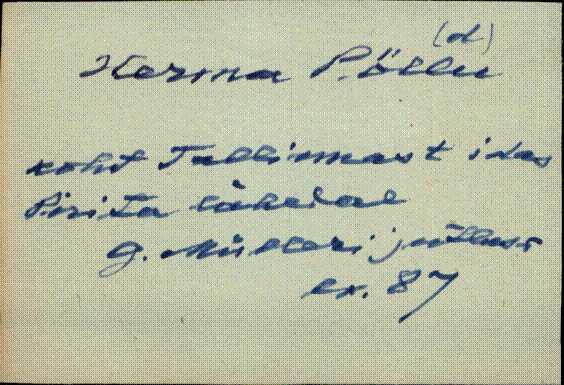 (d)
Kerma Põllu
koht Tallinnast idas
Pirita lähedal
G. Mülleri jutlus
lk. 87